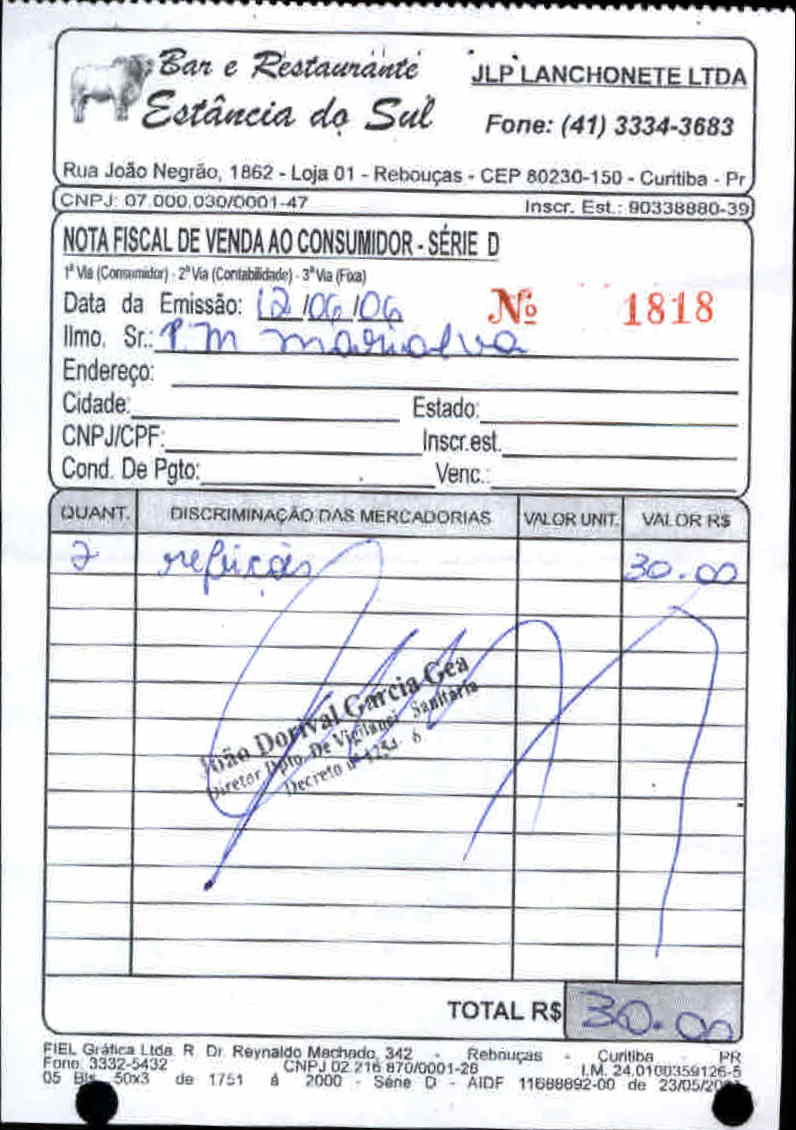 Bar e Restaurante
Estância do Sul
JLP LANCHONETE LTDA
Fone: (41) 3334-3683
Rua João Negrão, 1862 - Loja 01 - Rebouças - CEP 80230-150 - Curitiba - Pr
CNPJ: 07.000.030/0001-47 Inscr. Est.: 90338880-39
NOTA FISCAL DE VENDA AO CONSUMIDOR - SÉRIE D
1ª Via (Consumidor) - 2ª Via (Contabilidade) - 3ª Via (Fixa)
Data da Emissão: 12/06/06 Nº 1818
Ilmo. Sr.: P.M marialva
Endereço:
Cidade: Estado:
CNPJ/CPF: Inscr.est.
Cond. De Pgto: Venc.:
QUANT. DISCRIMINAÇÃO DAS MERCADORIAS VALOR UNIT. VALOR R$
2 refeições 30.00
João Dorival Garcia Gea
Diretor Dpto. De Vigilanci Sanitária
Decreto nº 1254 6
TOTAL R$ 30.00
FIEL Gráfica Ltda. R. Dr. Reynaldo Machado, 342 - Rebouças - Curitiba - PR
Fone: 3332-5432 CNPJ 02.216.870/0001-26 I.M. 24.0100359126-5
05 Bls. 50x3 de 1751 á 2000 - Série D - AIDF 11688892-00 de 23/05/